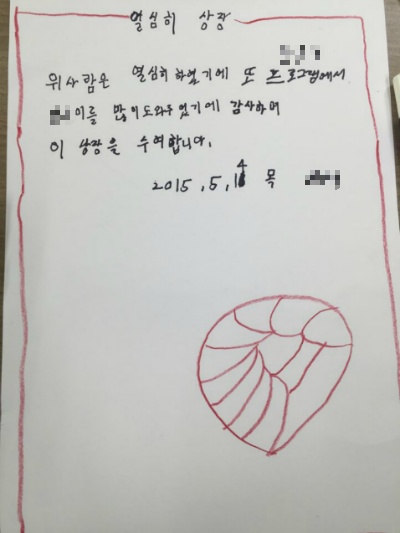 열심히 상장
위사람은 열심히 하였기에 또 프로그램에서
이를 많이 도와주었기에 감사하며
이 상장을 수여합니다.
2015.5.14 목